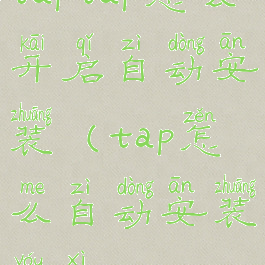 tap tap怎 装
kāi qǐ zì dòng ān
开启自动安
zhuāng zěn
装（tap怎
me zì dòng ān zhuāng
么自动安装
yóu xì